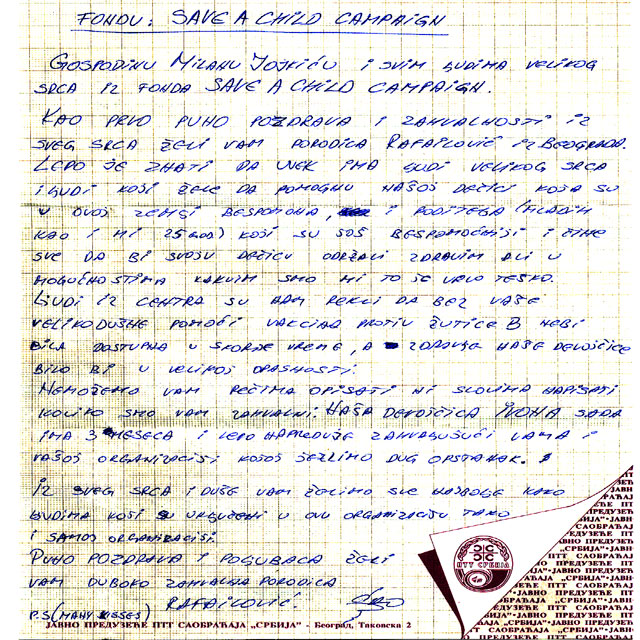 FONDU: SAVE A CHILD CAMPAIGN
GOSPODINU MILANU JOJKIĆU I SVIM LJUDIMA VELIKOG
SRCA IZ FONDA SAVE A CHILD CAMPAIGN.
KAO PRVO PUNO POZDRAVA I ZAHVALNOSTI IZ
SVEG SRCA ŽELI VAM PORODICA RAFAILOVIĆ IZ BEOGRADA.
LEPO JE ZNATI DA UVEK IMA LJUDI VELIKOG SRCA
I LJUDI KOJI ŽELE DA POMOGNU NAŠOJ DEČICI KOJA SU
U OVOJ ZEMLJI BESPOMOĆNA, I RODITELJA (MLADIH
KAO I MI 25 GOD) KOJI SU JOŠ BESPOMOĆNIJI I ČINE
SVE DA BI SVOJU DEČICU ODRŽALI ZDRAVIM ALI U
MOGUĆNOSTIMA KAKVIM SMO MI TO JE VRLO TEŠKO.
LJUDI IZ CENTRA SU NAM REKLI DA BEZ VAŠE
VELIKODUŠNE POMOĆI VAKCINA PROTIV ŽUTICE B NEBI
BILA DOSTUPNA U SKORIJE VREME, A ZDRAVLJE NAŠE DEVOJČICE
BILO BI U VELIKOJ OPASNOSTI.
NEMOŽEMO VAM REČIMA OPISATI NI SLOVIMA NAPISATI
KOLIKO SMO VAM ZAHVALNI. NAŠA DEVOJČICA IVONA SADA
IMA 3 MESECA I LEPO NAPREDUJE ZAHVALJUJUĆI VAMA I
VAŠOJ ORGANIZACIJI KOJOJ ŽELIMO DUG OPSTANAK.
IZ SVEG SRCA I DUŠE VAM ŽELIMO SVE NAJBOLJE KAKO
LJUDIMA KOJI SU UKLJUČENI U OVU ORGANIZACIJU TAKO
I SAMOJ ORGANIZACIJI.
PUNO POZDRAVA I POLJUBACA ŽELI
VAM DUBOKO ZAHVALNA PORODICA
RAFAILOVIĆ.
P.S (MANY KISSES)
ЈАВНО ПРЕДУЗЕЋЕ ПТТ САОБРАЋАЈА „СРБИЈА" - Београд, Таковска 2
ПТТ СРБИЈА